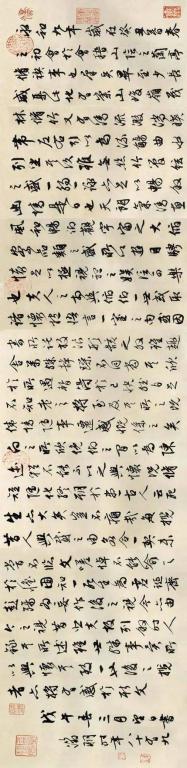 永和九年歲在癸丑暮春
之初會於會稽山陰之蘭亭
脩禊事也羣賢畢至少長
咸集此地有崇山峻領茂
林脩竹又有清流激湍暎
帶左右引以為流觴曲水
列坐其次雖無絲竹管絃
之盛一觴一詠亦足以暢敘
幽情是日也天朗氣清惠
風和暢仰觀宇宙之大俯
察品類之盛所以遊目騁
懷足以極視聽之娛信可樂
也夫人之相與俯仰一世或取
諸懷抱悟言一室之內或因
寄所託放浪形骸之外雖趣
舍萬殊靜躁不同當其欣
於所遇暫得於己快然自足
不知老之將至及其所之既
倦情隨事遷感慨係之矣
向之所欣俛仰之間以為陳
迹猶不能不以之興懷況脩
短隨化終期於盡古人云死
生亦大矣豈不痛哉每攬
昔人興感之由若合一契未
嘗不臨文嗟悼不能喻之
於懷固知一死生為虛誕齊
彭殤為妄作後之視今亦由
今之視昔悲夫故列敘時人
錄其所述雖世殊事異所
以興懷其致一也後之攬
者亦將有感於斯文
戊午春三月望日書
徵明時年八十有九